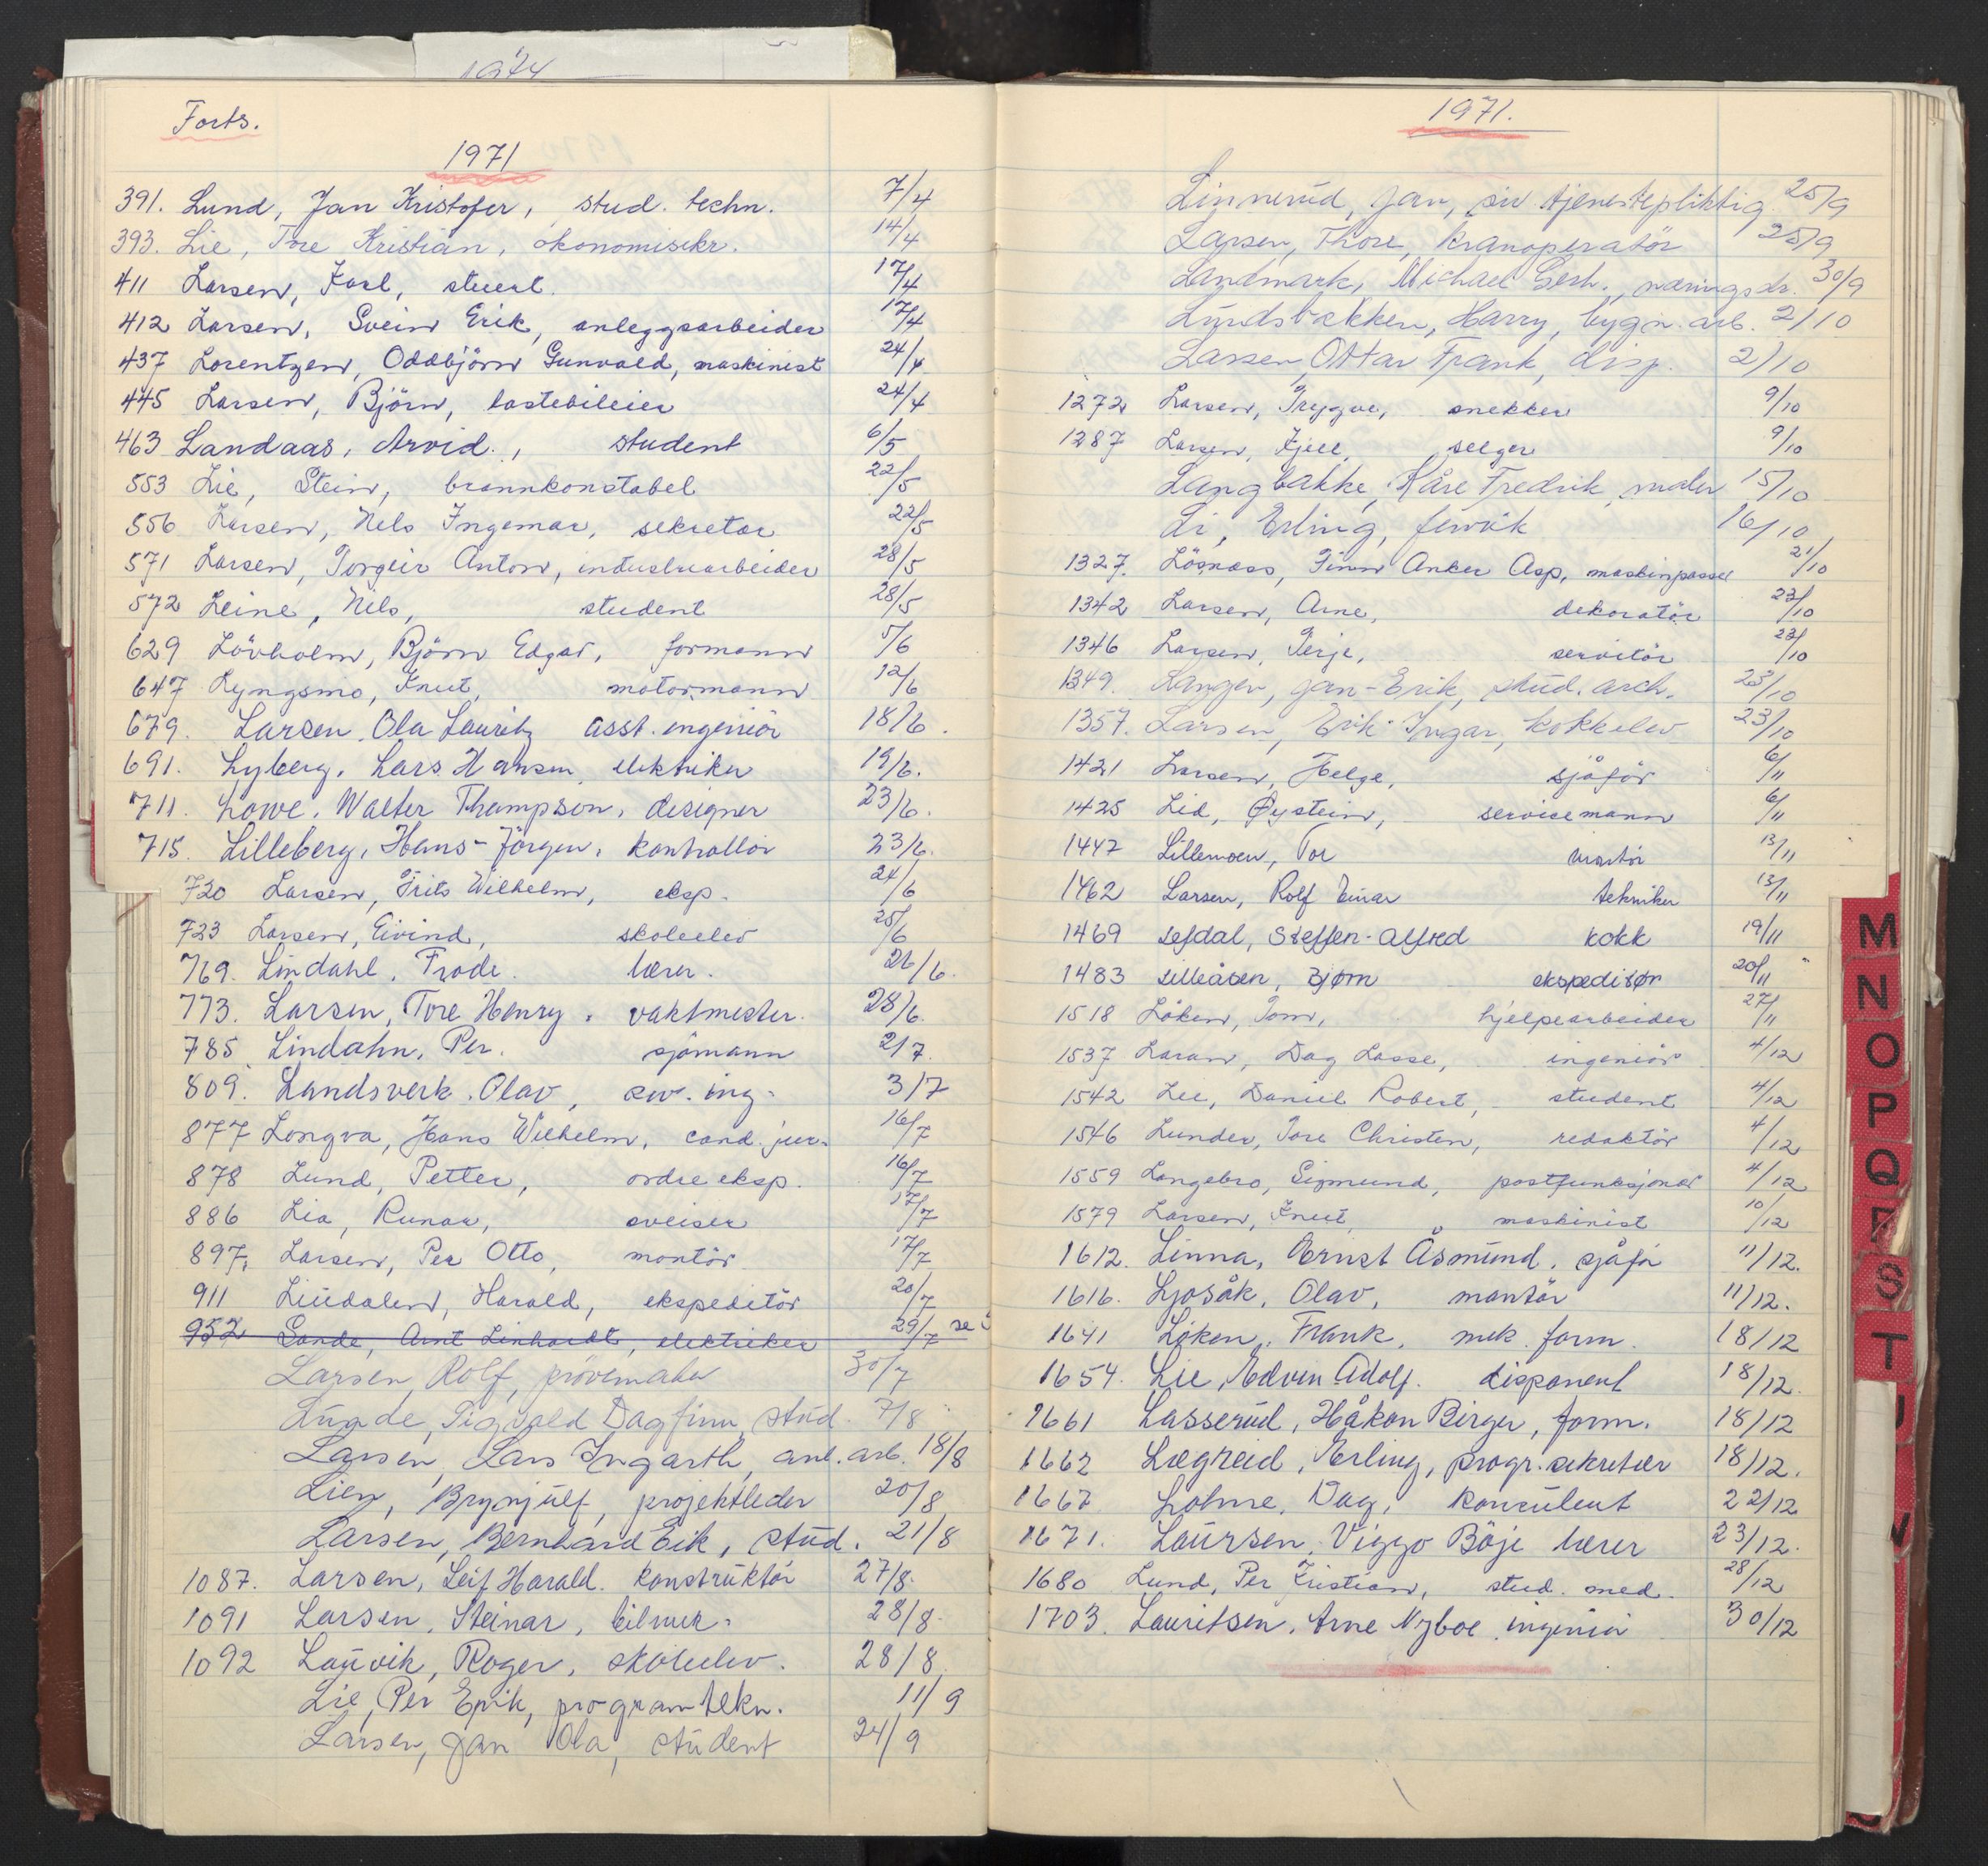 1974
Forts.
1971
391. Lund, Jan Kristofer, stud. techn. 7/4
393. Lie, Tore Kristian, økonomisekr. 14/4
411 Larsen, Karl, stuert 17/4
412 Larsen, Svein Erik, anleggsarbeider 17/4
437 Lorentzen, Oddbjörn Gunvald, maskinist 24/4
445 Larsen, Björn, lastebileier 24/4
463 Landaas, Arvid, student 6/5
553 Lie, Stein, brannkonstabel 22/5
556 Larsen, Nils Ingemar, sekretær 22/5
571 Larsen, Torgeir Anton, industriarbeider 28/5
572 Leine, Nils, student 28/5
629 Lövholm, Björn Edgar, formann 5/6
647 Lyngsmo, Knut, motormann 12/6
679. Larsen, Ola Lauritz asst. ingeniör 18/6.
691. Lyberg, Lars Hansen, elektriker 19/6.
711. Lowe, Walter Thompson, designer 23/6.
715. Lilleberg, Hans-Jörgen, kontrollör 23/6.
720 Larsen, Frits Wilhelm, eksp. 24/6
723 Larsen, Eivind, skoleelev 25/6
769. Lindahl, Frode. lærer. 26/6.
773. Larsen, Tore Henry, vaktmester. 28/6.
785 Lindahn, Per. sjömann 2/7.
809. Landsverk, Olav, siv. ing. 3/7
877 Longva, Hans Wilhelm, cand. jur. 16/7
878 Lund, Petter, ordre eksp. 16/7
886 Lia, Runar, sveiser 17/7
897. Larsen, Per Otto, montör 17/7
911 Liudalen, Harald, ekspeditör 20/7
952 Sande, Arnt Linhardt, elektriker 29/7 se S
Larsen, Rolf, prövemaler 30/7
Lunde, Sigvald Dagfinn, stud. 7/8
Larsen, Lars Ingarth, anl. arb. 18/8
Lien, Brynjulf, projektleder 20/8
Larsen, Bernhard Eik, stud. 21/8
1087. Larsen, Leif Harald. konstruktör 27/8.
1091 Larsen, Steinar, bilmek. 28/8.
1092 Lauvik, Roger, skoleelev. 28/8.
Lie, Per Erik, programtekn. 11/9
Larsen, Jan Ola, student 24/9
1971.
Linnerud, Jan, siv. tjenestepliktig 25/9
Larsen, Thore, kranoperatör 25/9
Landmark, Michael Gerh., næringsdr. 30/9
Lundsbakken, Harry, bygn. arb. 2/10
Larsen, Ottar Frank, disp. 2/10
1272 Larsen, Trygve, snekker 9/10
1287 Larsen, Kjell, selger 9/10
Langbakke, Kåre Fredrik, maler 15/10
Li, Erling, 16/10
1327. Lösnæss, Finn Anker Asp, maskinpasser 21/10
1342 Larsen, Arne, dekoratör 23/10
1346 Larsen, Terje, servitör 23/10
1349. Langen, Jan-Erik, stud. arch. 23/10
1357. Larsen, Erik Ingar, kokkelev 23/10
1421 Larsen, Helge, sjåfør 6/11
1425 Lid, Øystein, servicemann 6/11
1447 Lillemoen, Tor montör 13/11
1462 Larsen, Rolf Einar tekniker 13/11
1469 Lefdal, Steffen-Alfred kokk 19/11
1483 Lilleåsen, Bjørn ekspeditør 20/11
1518 Löken, Tom, hjelpearbeider 27/11
1537 Larsen, Dag Lasse, ingeniör 4/12
1542 Lee, Daniel Robert, student 4/12
1546 Lunder, Tore Christen, redaktör 4/12
1559 Langebro, Sigmund, postfunksjonær 4/12
1579 Larsen, Knut, maskinist 10/12
1612. Linna, Ernst Åsmund, sjåfør 11/12.
1616. Ljosåk, Olav, montör 11/12.
1641 Löken, Frank, mek. form. 18/12
1654. Lie, Edvin Adolf. disponent 18/12.
1661 Lasserud, Håkon Birger, form. 18/12
1662 Lægreid, Erling, progr. sekretær 18/12.
1667 Lohne, Dag, konsulent 22/12
1671. Laursen, Viggo Böje lærer 23/12.
1680 Lund, Per Kristian, stud. med. 28/12
1703. Lauritsen, Arne Nyboe, ingeniör 30/12
M
N
O
P
Q
S
T